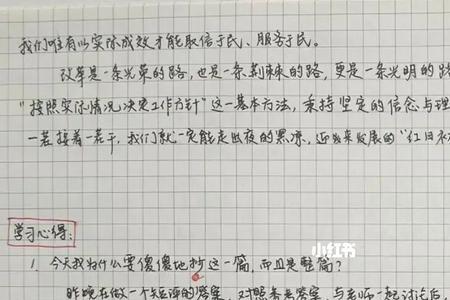 我们唯有以实际成效才能取信于民、服务于民。
改革是一条光荣的路,也是一条荆棘的路,更是一条光明的路
"按照实际情况决定工作方针"这一基本方法,秉持坚定的信念与理
一茬接着一茬干,我们就一定能走出夜的黑凉,迎来发展的"红日
学习心得:
小红书
1. 今天我为什么要傻傻地抄这一篇,而且是整篇?
昨晚在做一个短评的答案,对照参考答案,与老师一起讨论后,